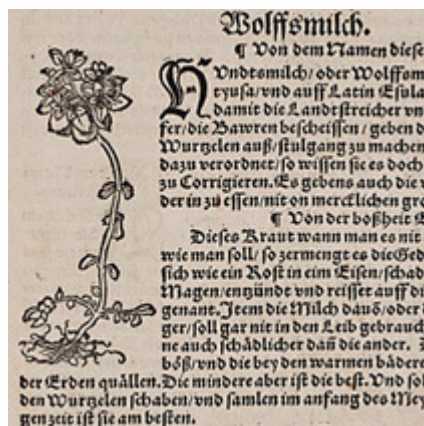 Wolffsmilch.
¶ Von dem Namen diese
HVndtsmilch/ oder Wolffsm
tyusa/vnd auff Latin Esula
damit die Landtstreicher vn
fer/die Bawren bescheissen/ geben d
Wurtzelen auß/stulgang zu machen
dazu verordnet/so wissen sie es doch
zu Corrigieren. Es gebens auch die
der in zu essen/nit on mercklichen gro
¶ Von der boßheit
Dieses Kraut wann man es nit
wie man soll/ so zermengt es die Ged
sich wie ein Rost in eim Eisen/schad
Magen/entzündt vnd reisset auff di
genant. Jtem die Milch dauõ/oder d
ger/soll gar nit in den Leib gebrauch
ne auch schädlicher dañ die ander.
böß/vnd die bey den warmen bädere
der Erden quällen. Die mindere aber ist die best. Vnd sol
den Wurtzelen schaben/vnd samlen im anfang des Mey
gen zeit ist sie am besten.